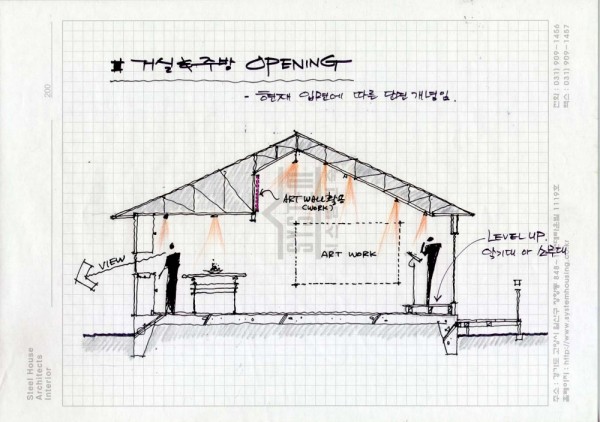 거실+주방 OPENING
- 현재 입면에 따른 단면 개념임.
ART WALL 활용
(WORK)
ART WORK
VIEW
LEVEL UP.
악기대 or
200
Steel House
Architects
Interior
전화 : 031) 909-1456
팩스 : 031) 909-1457
홈페이지 : http://www.systemhousing.co.kr